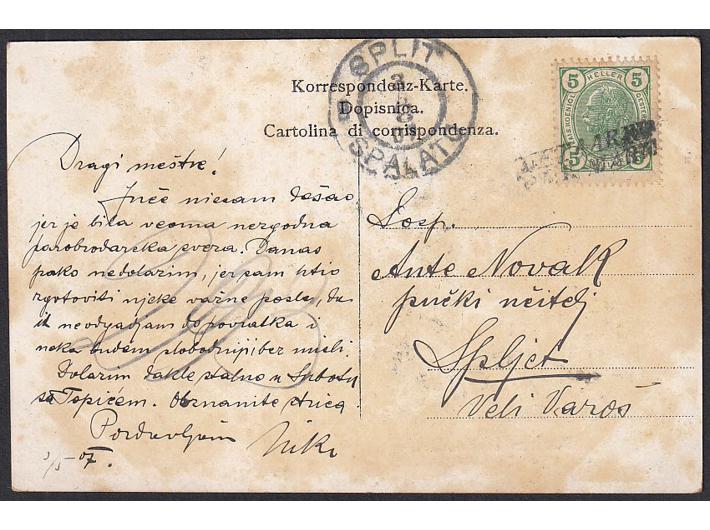 Korrespondenz-Karte.
Dopisnica.
Cartolina di corrispondenza.
SPLIT
SPALATO
5 HELLER 5
5 5
Dragi meštre!
Juče nisam došao
jer je bila veoma nezgodna
parobrodarska sveza. Danas
pako nedolazim, jer sam htio
zgotoviti njeke važne posle, da
ih neodgađam do povratka i
neka budem slobodniji bez misli.
Dolazim dakle stalno u Subotu
sa Topićem. Obznanite strica
Pozdravljam
Niko
3/5-07.
Gosp.
Ante Novak
pučki učitelj
Spljet
Veli Varoš